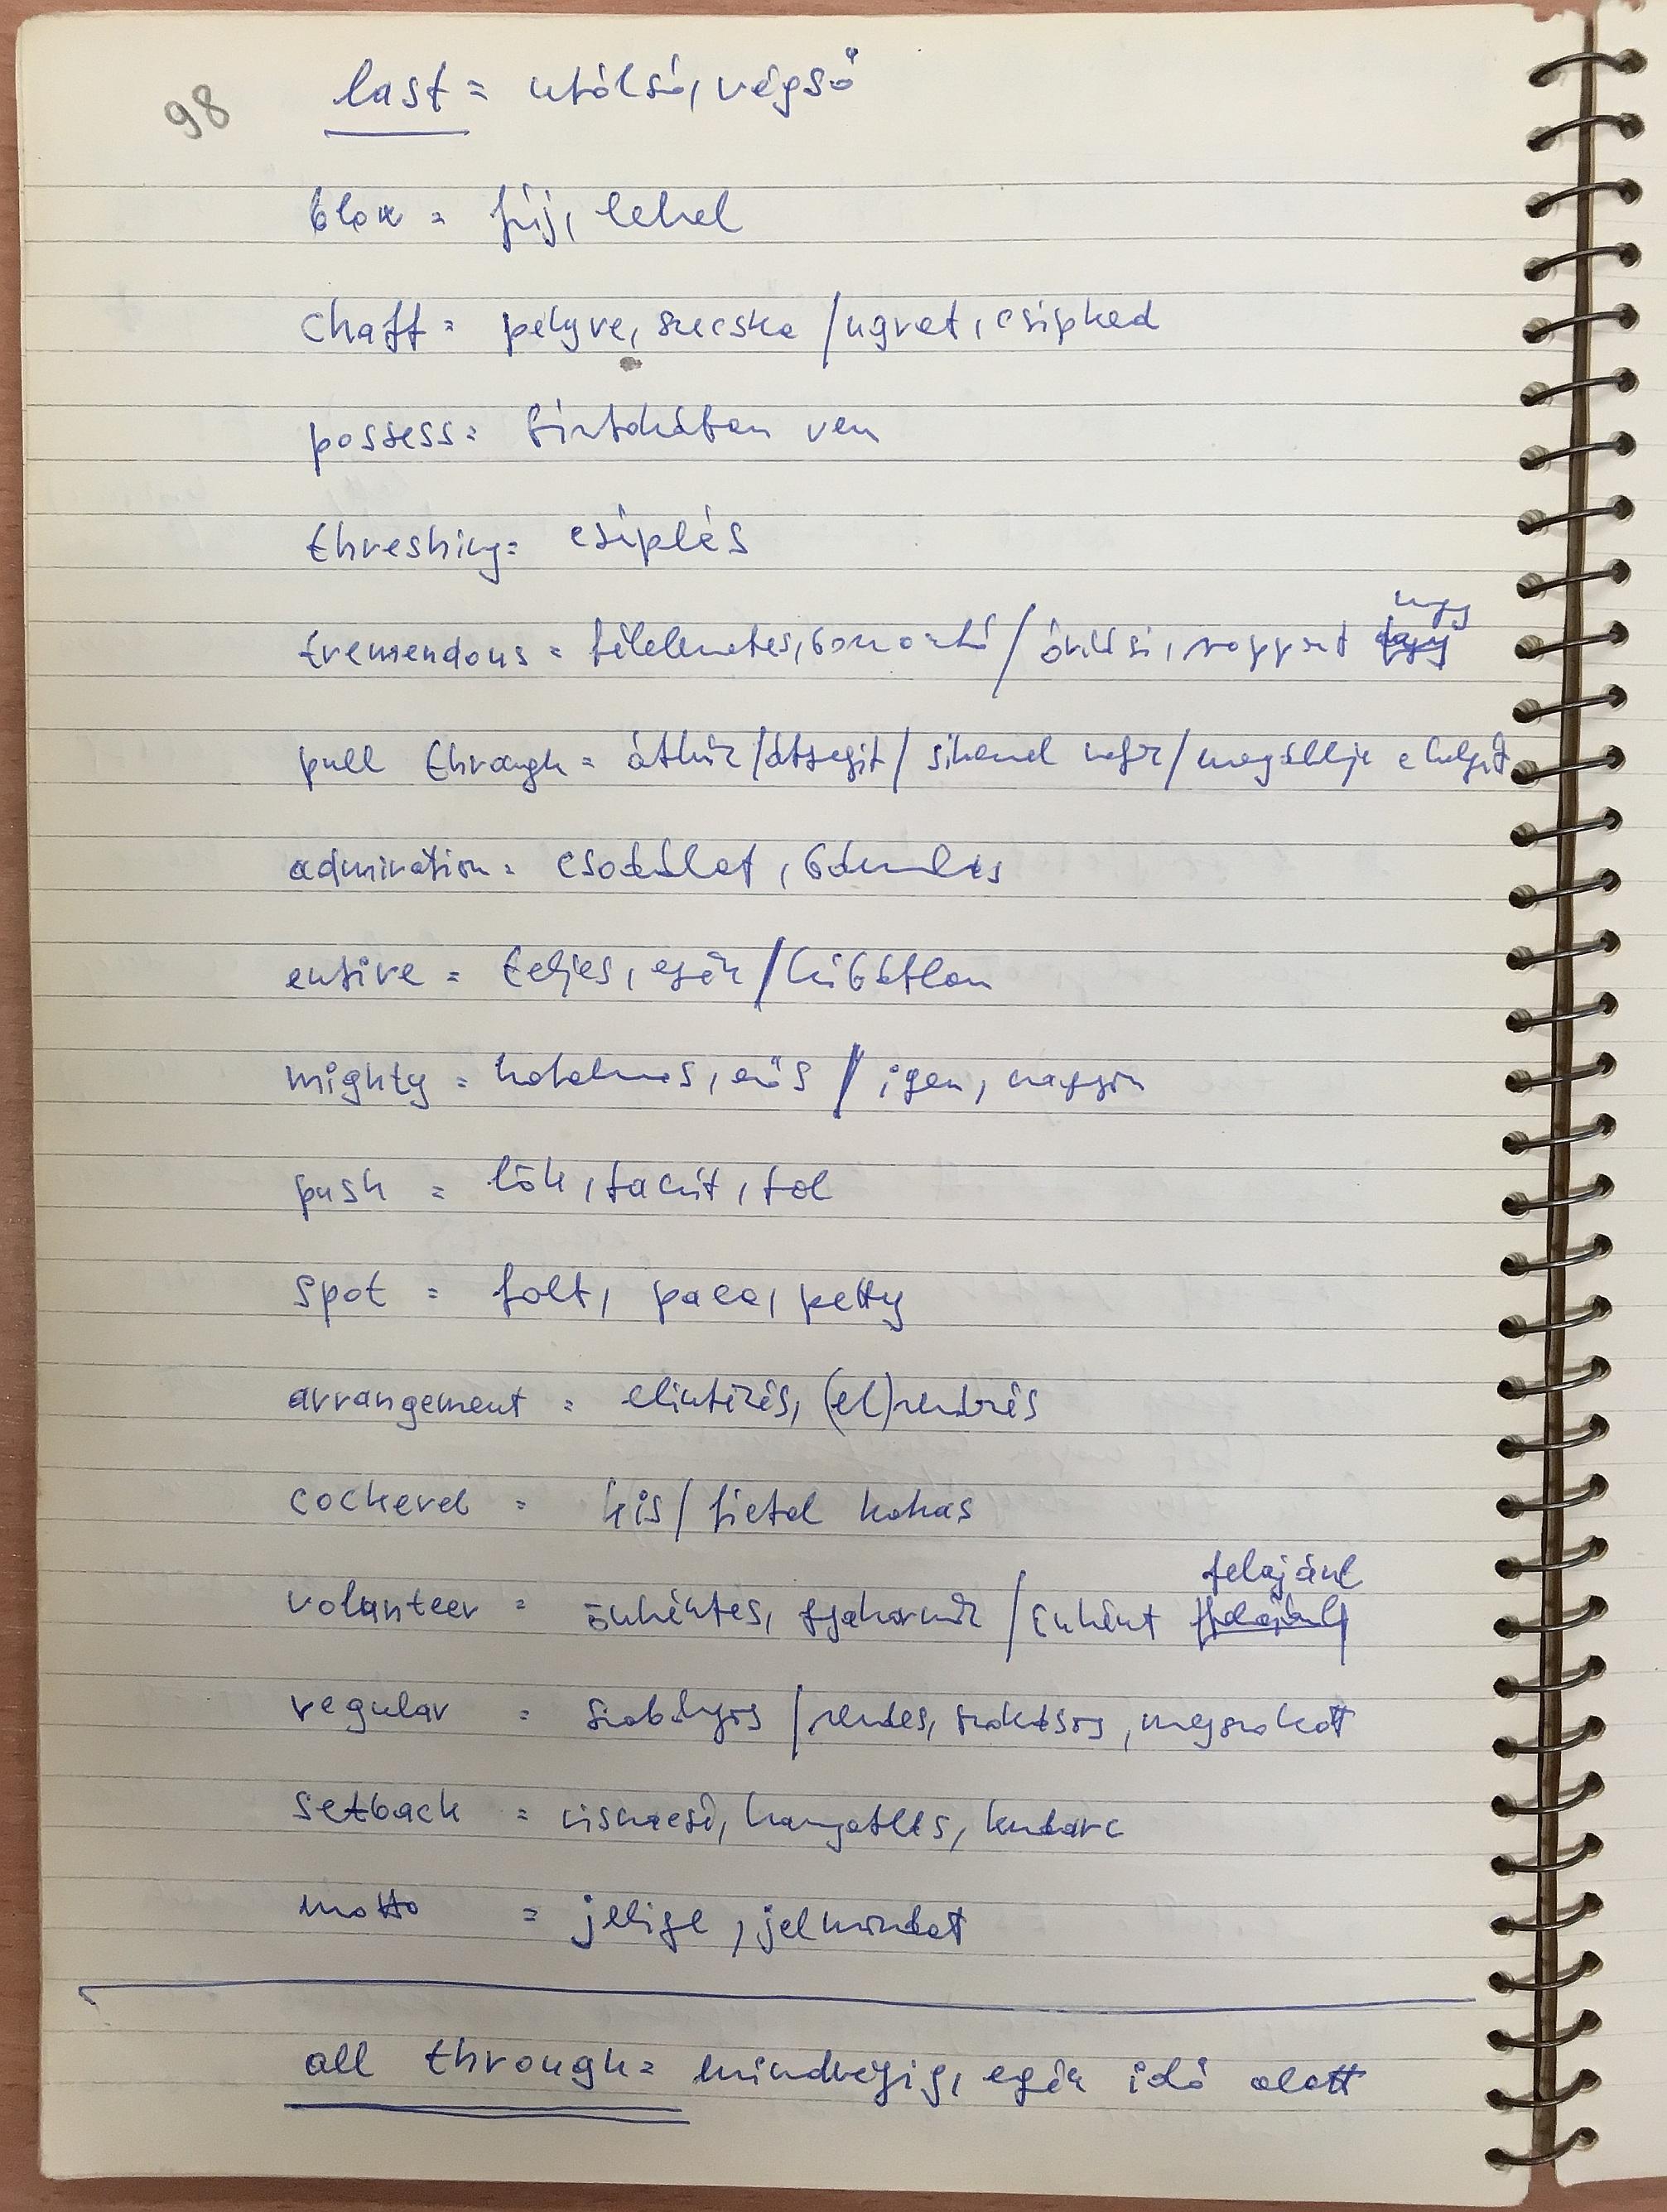 98
last = utólsó, végső
blow = fúj, lehel
chaff = pelyva, szecska / ugrat, csipked
possess = birtokában van
threshing = cséplés
nagy
tremendous = félelmetes, borzasztó / óriási, roppant
pull through = áthúz / átsegít / sikerrel végz / megállja a helyét
admiration = csodálat, bámulás
entire = teljes, egész / hibátlan
mighty = hatalmas, erős / igen, nagyon
push = lök, taszít, tol
spot = folt, paca, petty
arrangement = elintézés, (el)rendezés
cockerel = kis / fiatal kakas
felajánl
volanteer = önkéntes, gyakornok / önként
regular = szabályos / rendes, szokásos, megszokott
setback = visszaesés, hanyatlás, kudarc
motto = jelige, jelmondat
all through = mindvégig, egész idő alatt